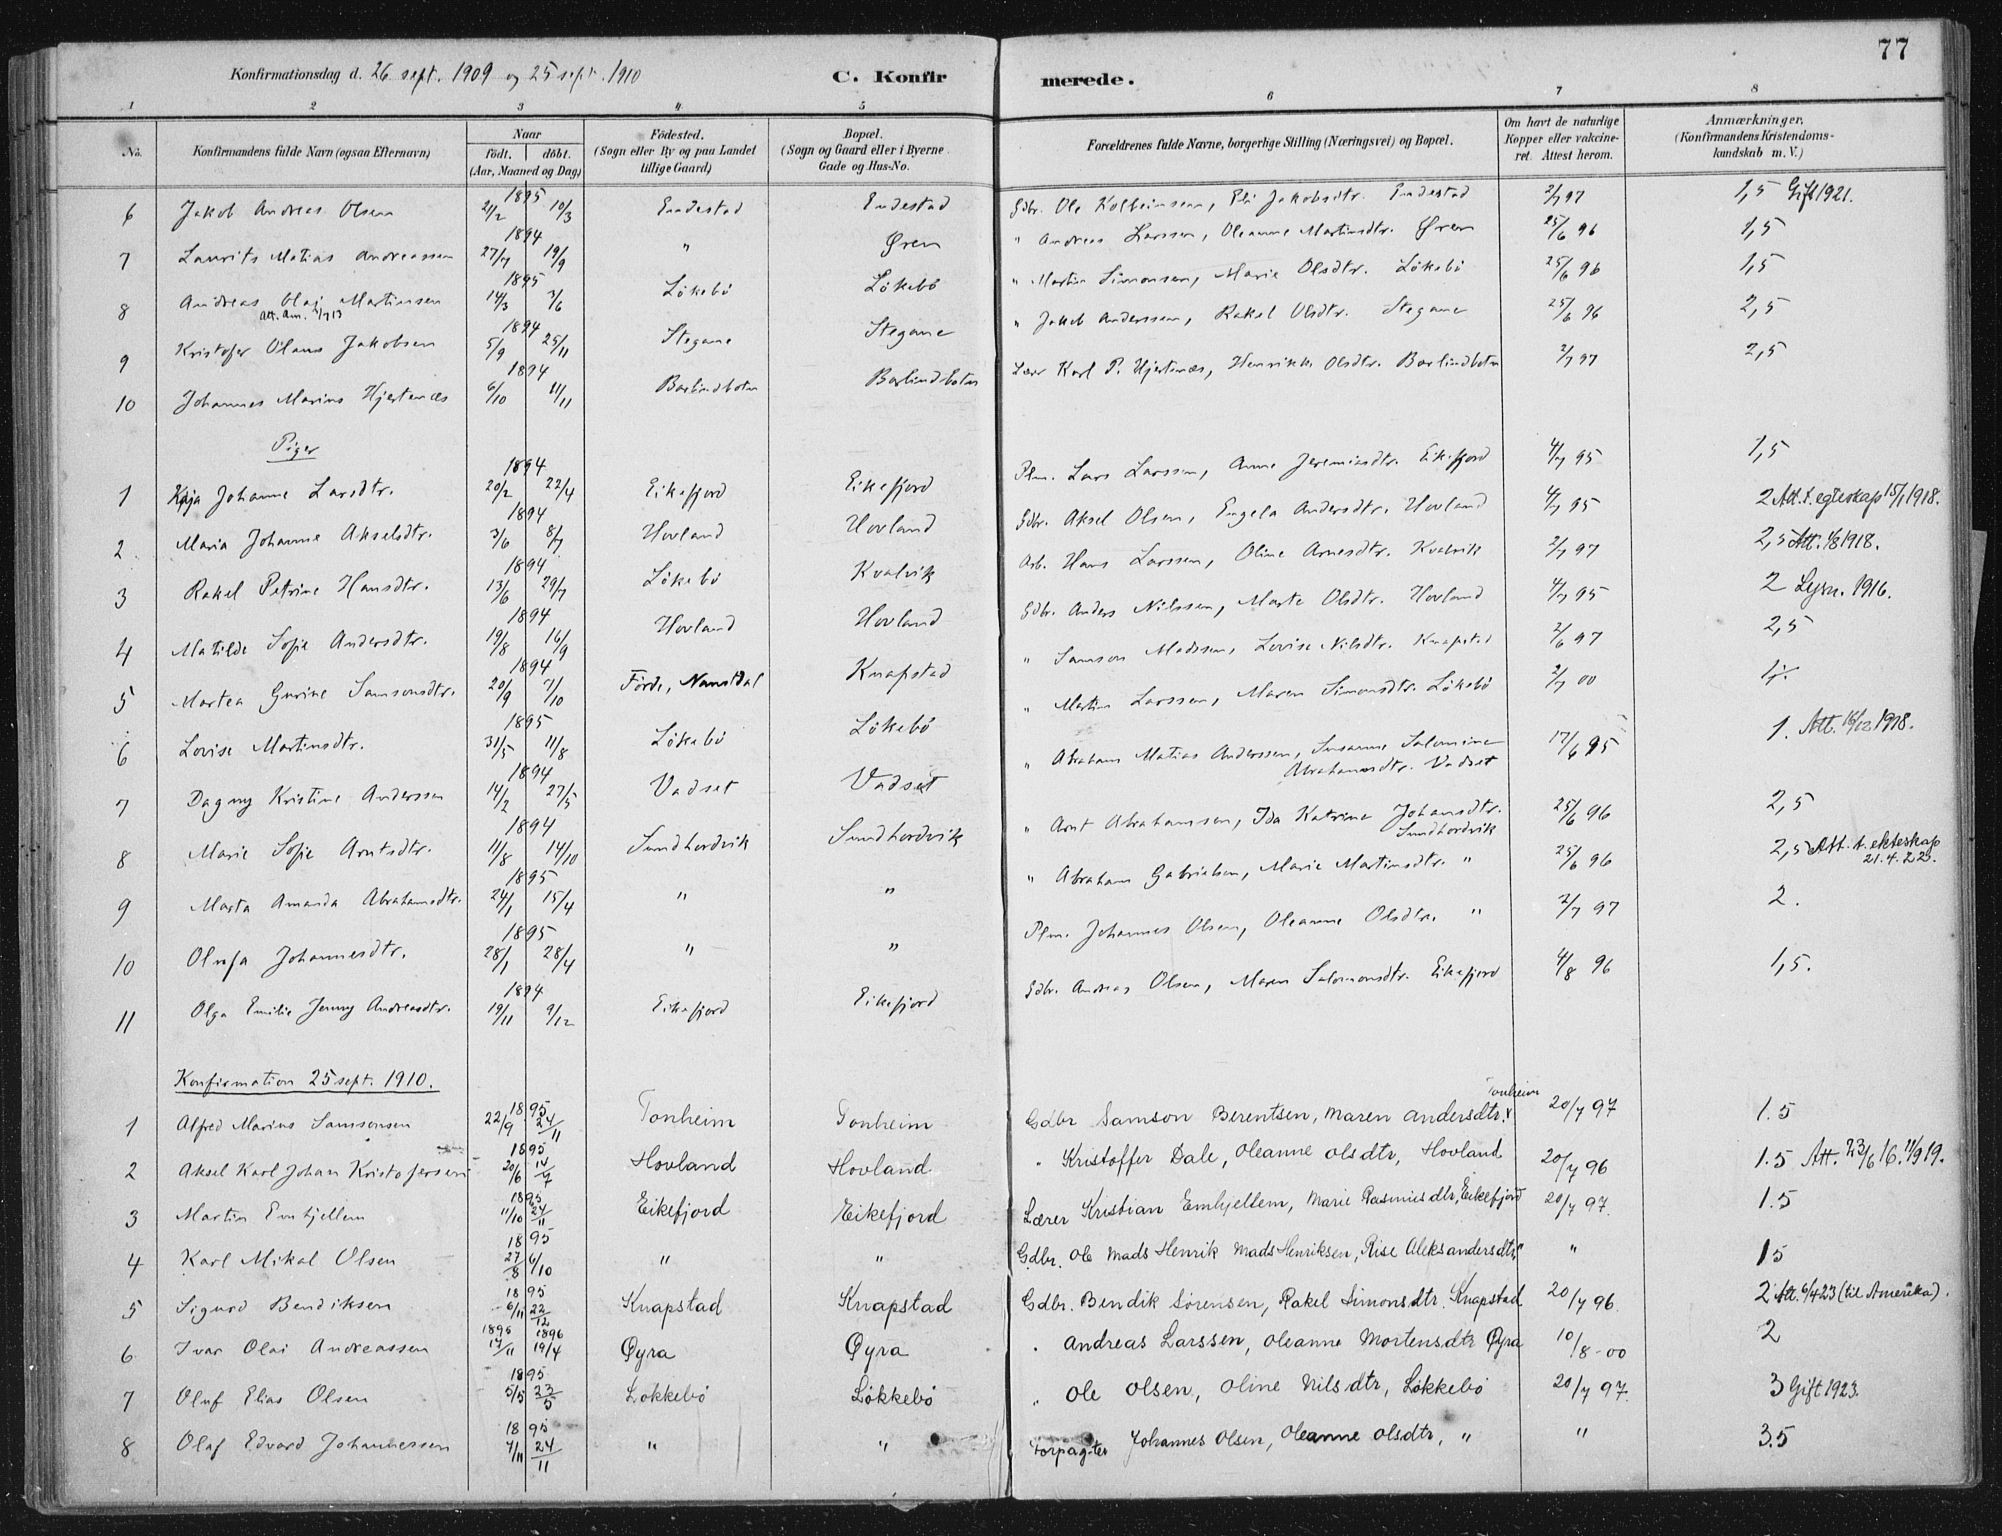 77
Konfirmationsdag d. 26 sept. 1909 og 25 sept. 1910 C. Konfirmerede.
1 2 3 4 5 6 7 8
No. Konfirmandens fulde Navn (ogsaa Efternavn) Naar födt. döbt. (Aar, Maaned og Dag) Födested. (Sogn eller By og paa Landet tillige Gaard) Bopæl. (Sogn og Gaard eller i Byerne Gade og Hus-No. Forældrenes fulde Navne, borgerlige Stilling (Næringsvei) og Bopæl. Om havt de naturlige Kopper eller vakcineret. Attest herom. Anmærkninger. (Konfirmandens Kristendomskundskab m. V.)
6 Jakob Andreas Olsen 1895 21/2 10/3 Endestad Endestad Gdbr. Ole Kolbeinsen, Eli Jakobsdtr. Endestad 2/7 97 1,5 Gift 1921.
7 Laurits Matias Andreassen 1894 27/7 19/9 " Øren " Andreas Larssen, Oleanne Martinsdtr. Øren 25/6 96 1,5
8 Andreas Olai Martinsen 1895 14/3 3/6 Lökebö Lökebö " Martin Simonsen, Marie Olsdtr. Lökebö 25/6 96 1,5
Att. Am. 2/7 13
9 Kristofer Olaus Jakobsen 1894 5/9 25/11 Stegane Stegane " Jakob Anderssen, Rakel Olsdtr. Stegane 25/6 96 2,5
10 Johannes Marius Hjertenæs 1894 6/10 11/11 Barlindbotn Barlindbotn Lærer Karl P. Hjertenæs, Henrikke Olsdtr. Barlindbotn 2/7 97 2,5
Piger
1 Kaja Johanne Larsdtr. 1894 20/2 22/4 Eikefjord Eikefjord Plm. Lars Larssen, Anne Jeremiasdtr. Eikefjord 4/7 95 1,5
2 Maria Johanne Akselsdtr. 1894 3/6 8/7 Hovland Hovland Gdbr. Aksel Olsen, Engela Andersdtr. Hovland 4/7 95 2 Att. t. egteskap 15/1 1918.
3 Rakel Petrine Hansdtr. 1894 13/6 29/7 Lökebö Kvalvik Arb. Hans Larssen, Oline Arnesdtr. Kvalvik 2/7 97 2,5 Att. 1/8 1918.
4 Matilde Sofie Andersdtr. 1894 19/8 16/9 Hovland Hovland Gdbr. Anders Nilssen, Marte Olsdtr. Hovland 4/7 95 2 Lysn. 1916.
5 Martea Gurine Samsonsdtr. 1894 20/9 7/10 Förde, Naustdal Knapstad " Samson Madssen, Lovise Nilsdtr. Knapstad 2/6 97 2,5
6 Lovise Martinsdtr. 1895 31/5 11/8 Lökebö Lökebö " Martin Larssen, Maren Simonsdtr. Lökebö 2/7 00
7 Dagny Kristine Anderssen 1894 14/2 27/5 Vadset Vadset " Abraham Matias Anderssen, Susanne Salomine Abrahamsdtr. Vadset 17/6 95 1. Att. 16/12 1918.
8 Marie Sofie Arntsdtr. 1894 11/8 14/10 Sundhordvik Sundhordvik " Arnt Abrahamsen, Ida Katrine Johansdtr. Sundhordvik 25/6 96 2,5
9 Marta Amanda Abrahamsdtr. 1895 24/1 15/4 " " " Abraham Gabrielsen, Marie Martinsdtr. " 25/6 96 2,5 Att. t. ekteskap 21.4.223.
10 Olufa Johannesdtr. 1895 28/1 28/4 " " Plm. Johannes Olsen, Oleanne Olsdtr. " 2/7 97 2.
11 Olga Emilie Jenny Andreasdtr. 1894 19/11 9/12 Eikefjord Eikefjord Gdbr. Andreas Olsen, Maren Salomonsdtr. Eikefjord 4/8 96 1,5.
Konfirmation 25 sept. 1910.
1 Alfred Marius Samsonsen 1895 22/9 24/11 Tonheim Tonheim Gdbr Samson Berentsen, Maren Andersdtr. Tonheim 20/7 97 1.5
2 Aksel Karl Johan Kristofersen 1895 20/6 14/7 Hovland Hovland " Kristoffer Dale, Oleanne Olsdtr, Hovland 20/7 96 1.5 Att. 23/6 16. 11/9 19.
3 Martin Emhjellem 1895 11/10 24/11 Eikefjord Eikefjord Lærer Kristian Emhjellem, Marie Rasmusdtr, Eikefjord 20/7 97. 1.5
4 Karl Mikal Olsen 1895 27/8 6/10 " " Gdbr. Ole Mads Henrik Mads Henriksen, Rise Aleksandersdtr " " 15
5 Sigurd Bendiksen 1895 6/11 22/12 Knapstad Knapstad Gdbr. Bendik Sørensen, Rakel Simonsdtr. Knapstad 20/7 96. 2 Att. 6/4 23 (til Amerika).
6 Ivar Olai Andreassen 1895 17/11 1896 19/4 Øyra Øyra " Andreas Larssen, Oleanne Mortensdtr Øyra 10/8-00 2
7 Oluf Elias Olsen 1895 5/5 23/5 Løkkebö Løkkebö " Ole Olsen, Oline Nilsdtr, Løkkebö 20/7 97. 3 Gift 1923.
8 Olaf Edvard Johannessen 1895 7/11 24/11 " " Forpagter Johannes Olsen, Oleanne Olsdtr, " " 3.5